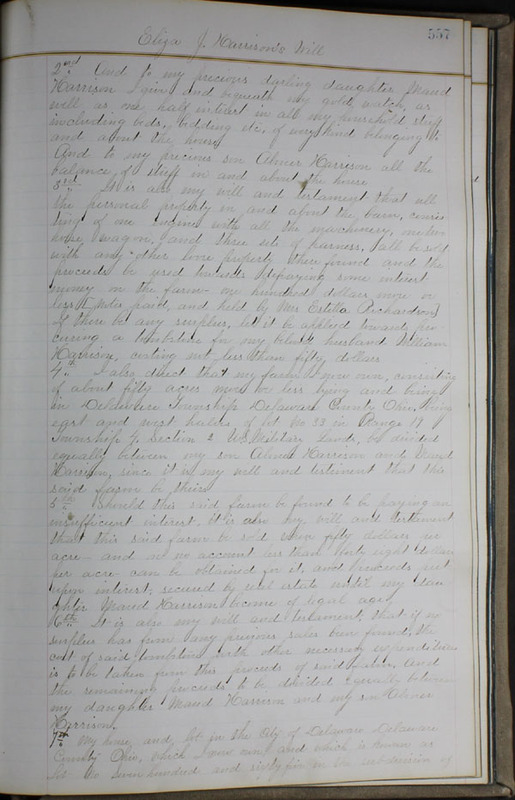 557
Eliza J. Harrison's Will
2nd And to my precious darling daughter Maud
Harrison I give and bequeath my gold watch, as
well as one half interest in all my household stuff
including beds, bedding etc. of every kind belonging to
and about the house
And to my precious son Abner Harrison all the
balance of stuff in and about the house
3rd It is also my will and testament that all
the personal property in and about the barn, consis
ting of one engine with all the machinery, one two
horse wagon, and three sets of harness, all be sold
with any other loose property there found and the
proceeds be used in repaying some interest
money on the farm one hundred dollars more or
less [Notes paid, and held by Mrs Estella Richardson]
If there be any surplus, let it be applied towards pro-
curing a tombstone for my beloved husband William
Harrison, costing not less than fifty dollars
4th I also direct that my farm I now own, consisting
of about fifty acres more or less lying and being
in Delaware Township Delaware County Ohio, being
east and west halves of lot No 33 in Range 19
Township 4, Section 2 U.S. Military lands, be divided
equally between my son Abner Harrison and Maud
Harrison, since it is my will and testament that this
said farm be theirs
5th Should this said farm be found to be paying an
insufficient interest. It is also my will and testament
that this said farm be sold when fifty dollars per
acre and on no account less than forty eight dollars
per acre can be obtained for it, and proceeds put
upon interest, secured by real estate until my dau
ghter Maud Harrison become of legal age
6th It is also my will and testament, that if no
surplus has from any previous sales been found, the
cost of said tombstone with other necessary expenditures
is to be taken from this proceeds of said farm, and
the remaining proceeds to be divided equally between
my daughter Maud Harrison and my son Abner
Harrison.
7th My house and lot in the City of Delaware Delaware
County Ohio, which I now own and which is known as
lot No seven hundred and sixty five in subdivision of